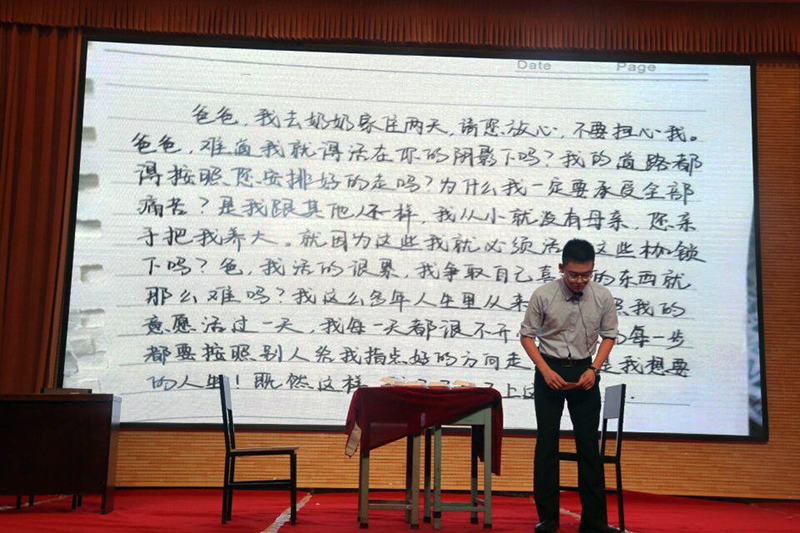 Date Page
爸爸,我去奶奶家住两天,请您放心,不要担心我。
爸爸,难道我就得活在你的阴影下吗?我的道路都
得按照您安排好的走吗?为什么我一定要承受全部
痛苦?是我跟其他人不一样,我从小就没有母亲,您亲
手把我养大。就因为这些我就必须活 这些枷锁
下吗?爸,我活的很累,我争取自己真 的东西就
那么难吗?我这么多年人生里从来 照我的
意愿活过一天,我每一天都很不开 每一步
都要按照别人给我指点好的方向走 是我想要
的人生!既然这样 上这